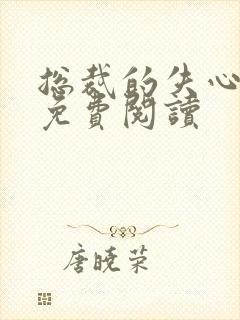 总裁的失心
免費閱讀
唐曉荣